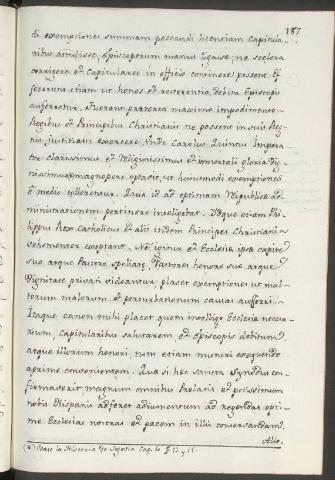 187
di exemptiones summam peccandi licentiam Capitula-
ribus attulisse, Episcoporum manus ligasse; ne scelera
corrigere et Capitulares in officio continere possent. Et
fecerunt etiam ut honos et reverentia debita Episcopis
auferretur. Fuerunt praeterea maximo impedimento
Regibus et Principibus Christianis ne possent in suis Reg-
nis justitiam exercere. Unde Carolus Quintus Impera-
tor clarissimus et Religiosissimus et immortali gloria dig-
nissimus magnopere optavit, ut huiusmodi exemptiones
è medio tollerentur. Quia id ad optimam Reipublicae ad-
ministrationem pertinere intelligebat. Idque etiam Phi-
lippus Rex Catholicus et alii itidem Principes Christiani
vehementer exoptant. Ne igitur et Ecclesia ipsa capite
suo atque Pastore spoliata, et Pastores honore suo atque
Dignitate privati videantur, placet exemptiones ut mul-
torum malorum et perturbationum causas auferri.
Itaque canon mihi placet quem intelligo Ecclesiae necesa-
rium, Capitularibus salutarem, et Episcopis debitum
atque illorum honori, tum etiam muneri exequendo
aprime convenientem. Qua si hec Sancta Synodus con-
firmaverit magnum omnibus Praelatis et potissimum
nobis Hispanis adferet adiumentum ad regendas opti-
me Ecclesias nostras et pacem in illis conservandam.
Alio.
(*) Vease la Historia de Segovia Cap. 42 § 13 y 15.